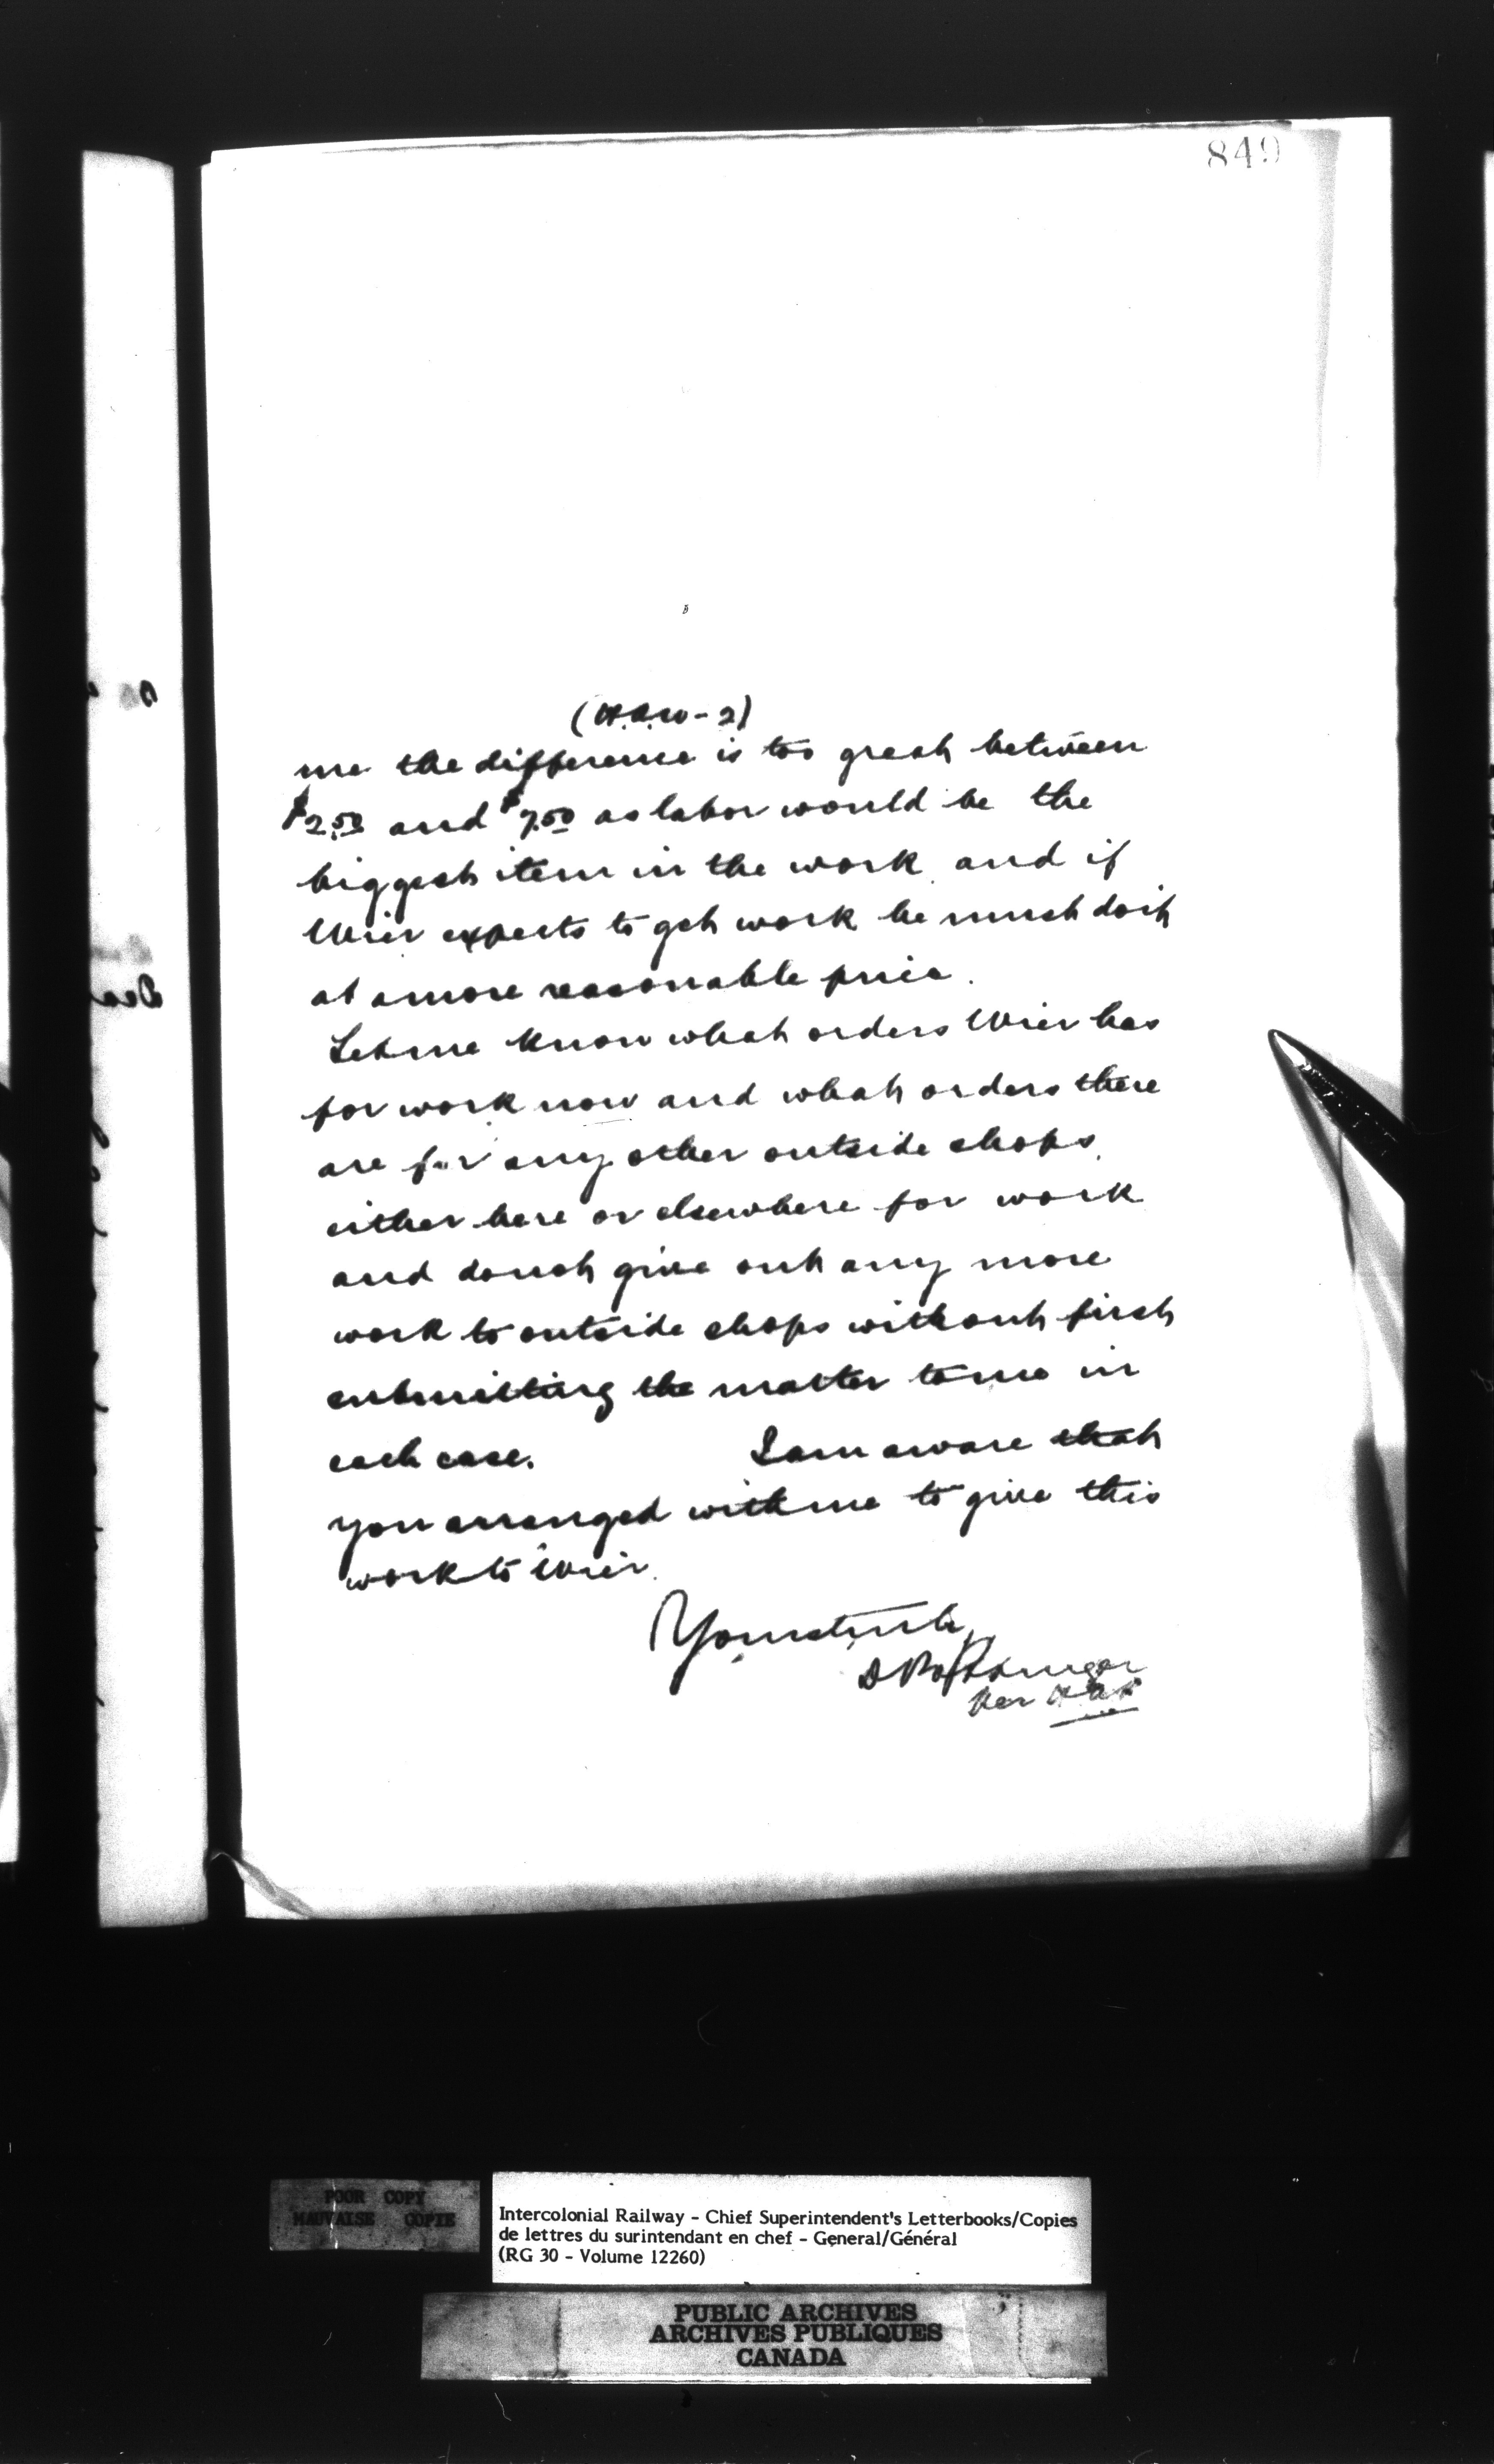 849
(H.A.W-2)
me the difference is too great between
$2.50 and $7.50 as labor would be the
biggest item in the work and if
Weir expects to get work he must do it
at a more reasonable price.
Let me know what orders Weir has
for work now and what orders there
are for any other outside shops
either here or elsewhere for work
and do not give out any more
work to outside shops without first
submitting the matter to me in
each case. I am aware that
you arranged with me to give this
work to Weir.
Yours truly
D Pottinger
Per
POOR COPY
MAUVAISE COPIE
Intercolonial Railway - Chief Superintendent's Letterbooks/Copies
de lettres du surintendant en chef - General/Général
(RG 30 - Volume 12260)
PUBLIC ARCHIVES
ARCHIVES PUBLIQUES
CANADA